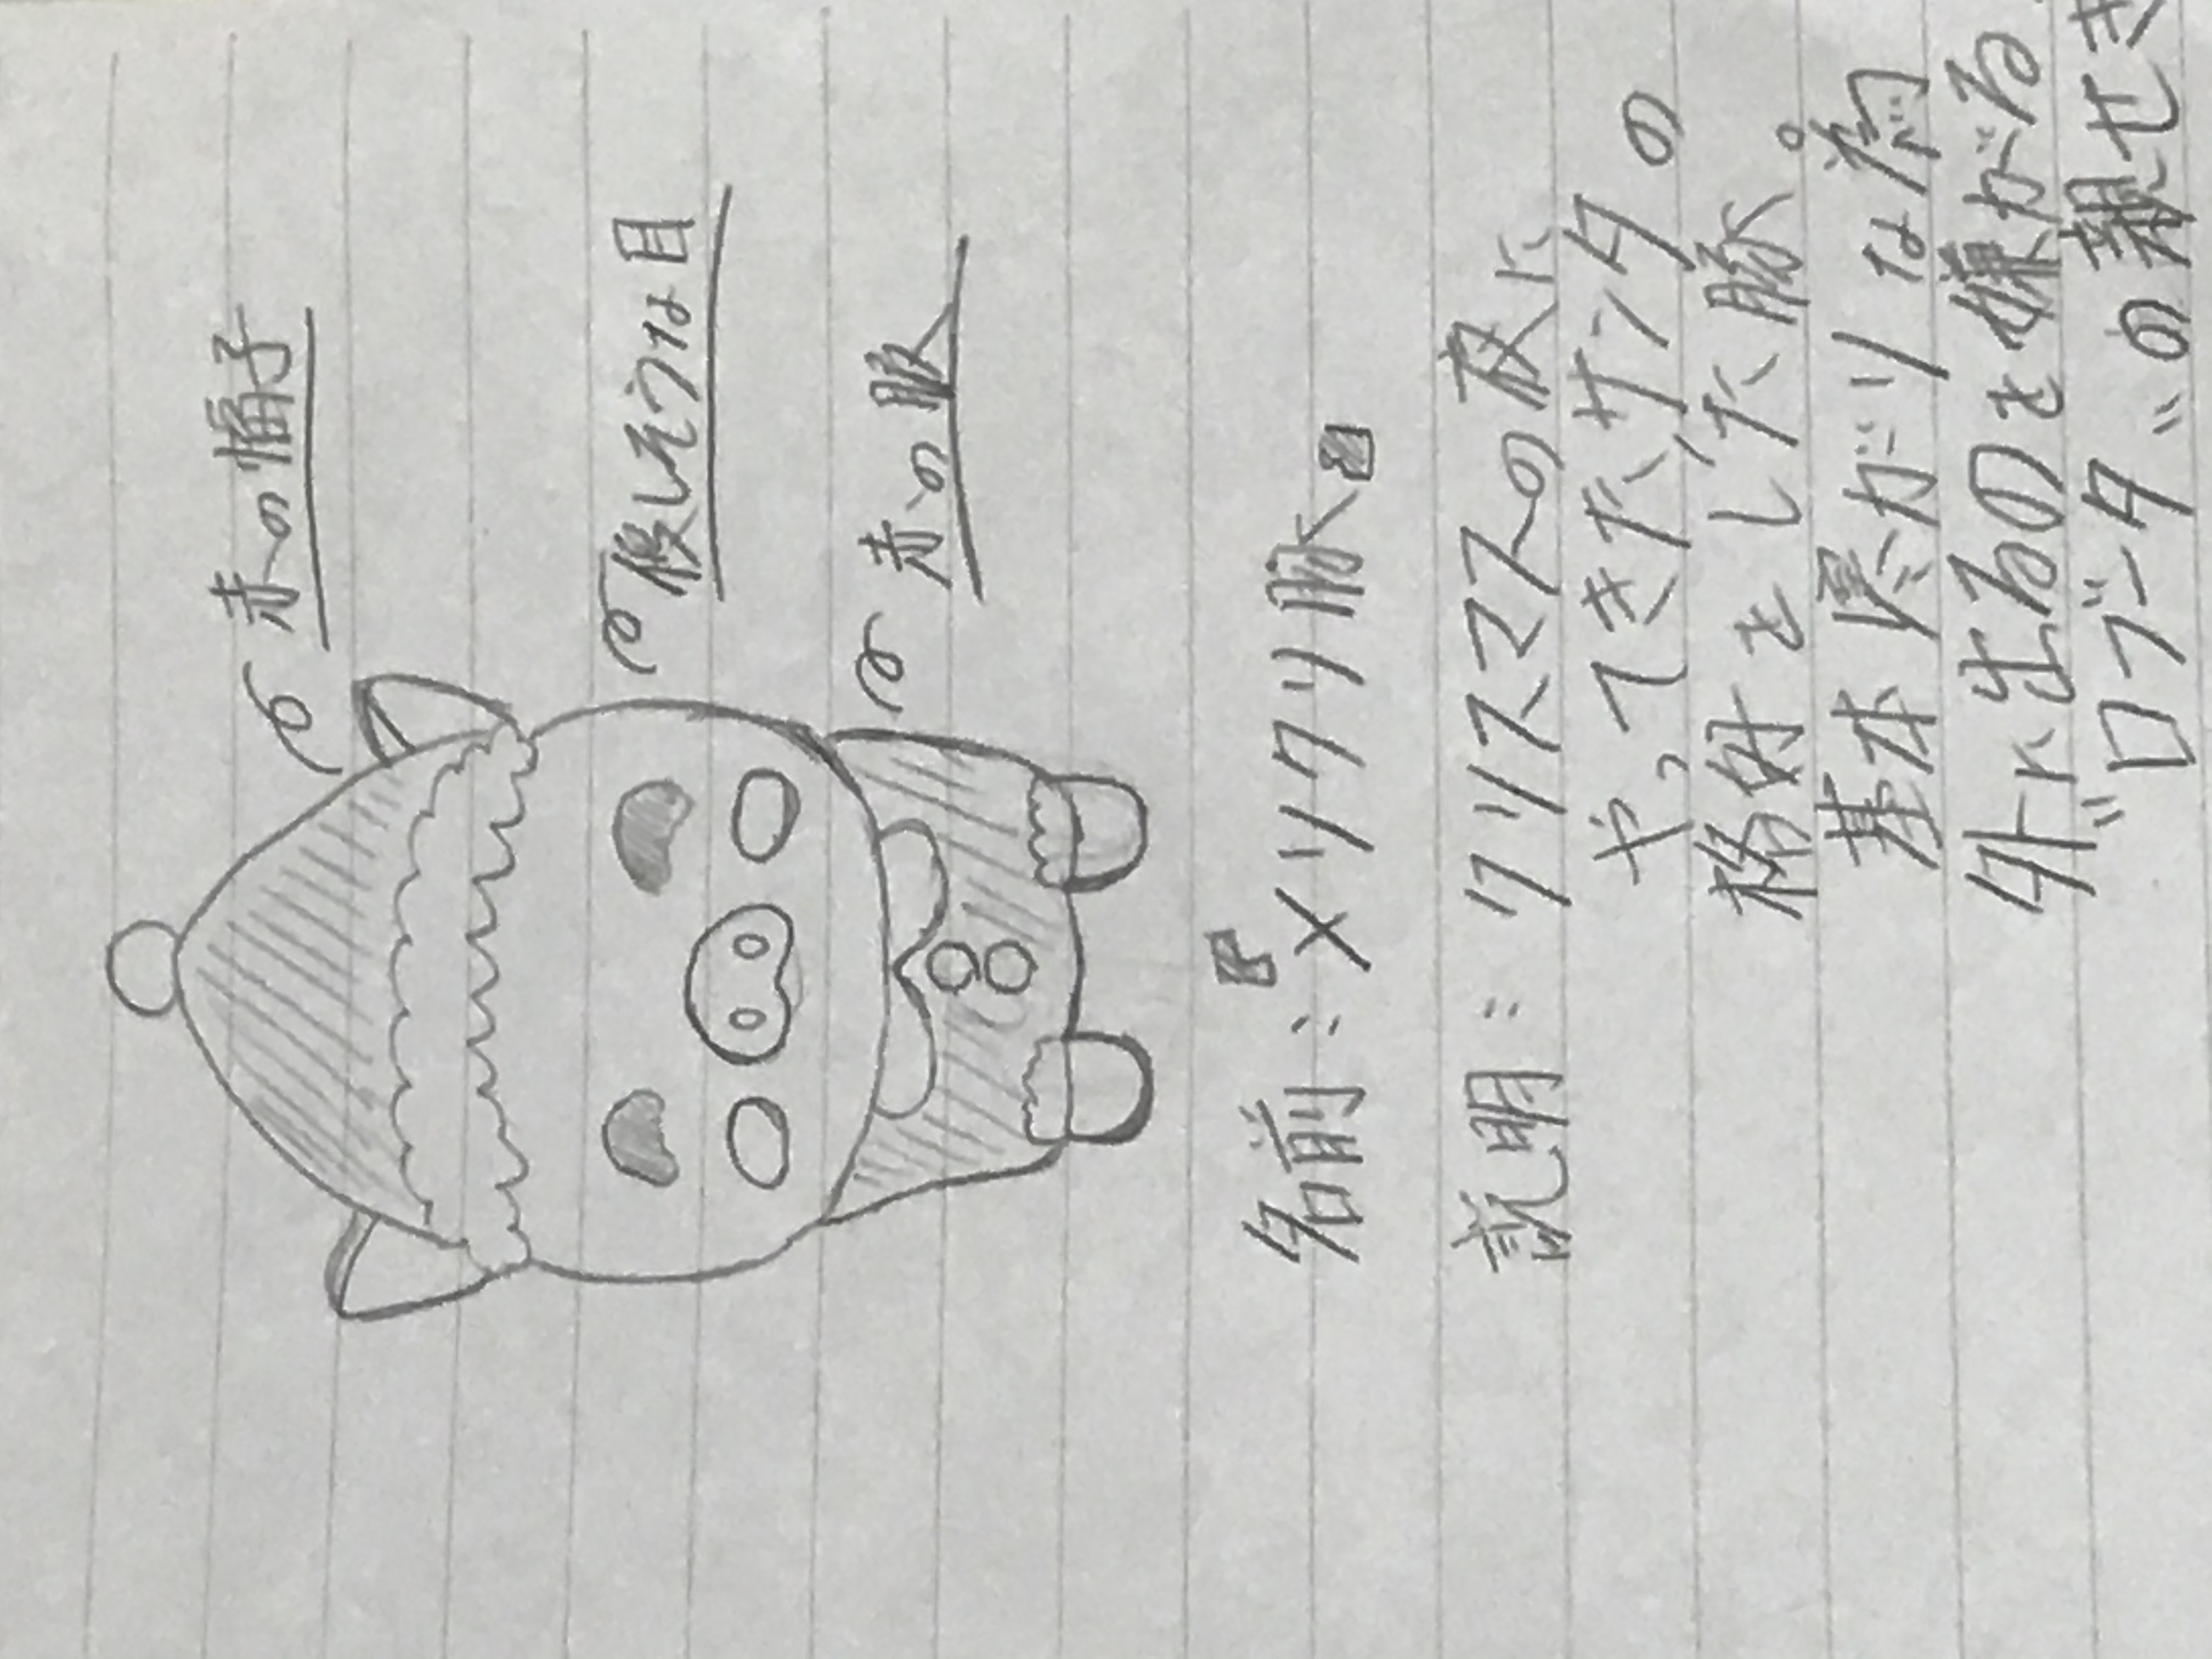 赤の帽子
優しそうな目
赤の服
名前:メリクリ豚
説明:クリスマスの夜に
やってきたサンタの
格好をした豚。
基本寒がりな為
外に出るのを嫌がる
"ロブータ"の親せき